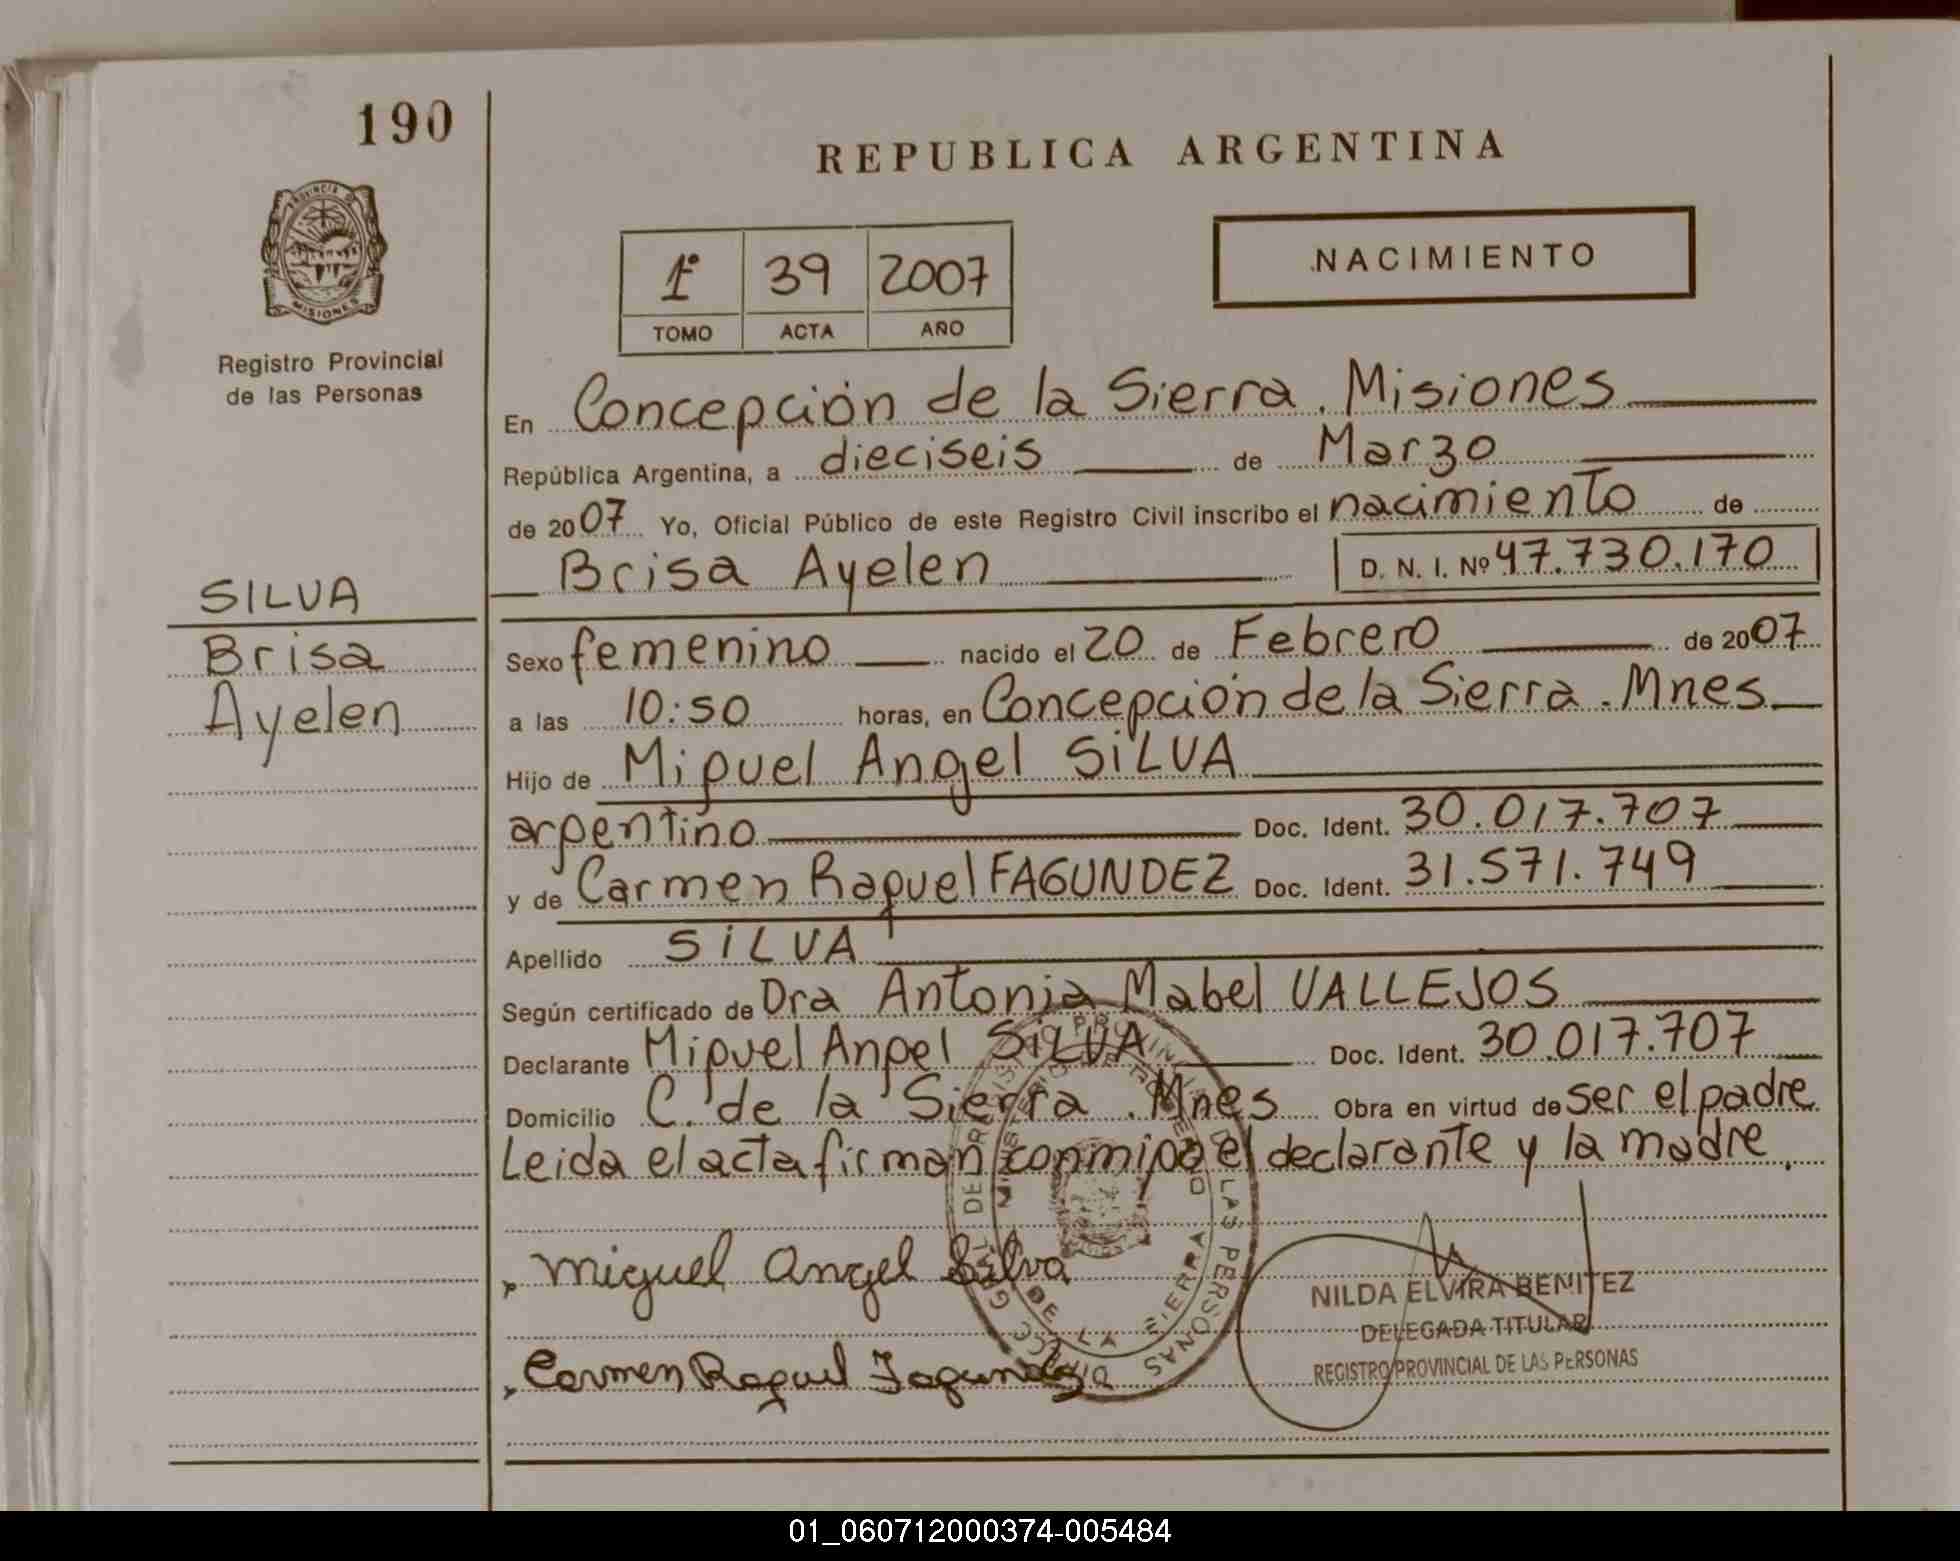 190
REPUBLICA ARGENTINA
PROVINCIA DE
MISIONES
Registro Provincial
de las Personas
1º 39 2007
TOMO ACTA AÑO
NACIMIENTO
En Concepción de la Sierra. Misiones
República Argentina, a dieciseis de Marzo
de 2007 Yo, Oficial Público de este Registro Civil inscribo el nacimiento de
Brisa Ayelen D. N. I. Nº 47.730.170
SILVA
Brisa
Ayelen
Sexo femenino nacido el 20 de Febrero de 2007
a las 10:50 horas, en Concepción de la Sierra. Mnes
Hijo de Miguel Angel SILVA
argentino Doc. Ident. 30.017.707
y de Carmen Raquel FAGUNDEZ Doc. Ident. 31.571.749
Apellido SILVA
Según certificado de Dra Antonia Mabel VALLEJOS
Declarante Miguel Angel SILVA Doc. Ident. 30.017.707
Domicilio C. de la Sierra. Mnes Obra en virtud de ser el padre
Leida el acta firman conmigo el declarante y la madre.
Miguel Angel Silva
Carmen Raquel Fagundez
DE LAS PERSONAS
DE LA SIERRA
NILDA ELVIRA BENITEZ
DELEGADA TITULAR
REGISTRO PROVINCIAL DE LAS PERSONAS
01_060712000374-005484